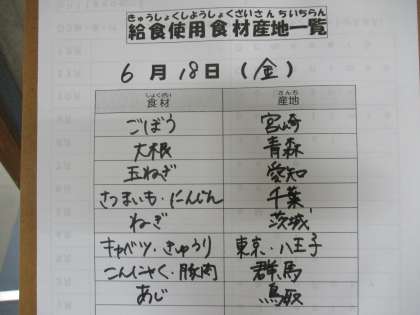 きゅうしょくしようしょくざいさんちいちらん
給食使用食材産地一覧
6月18日(金)
しょくざい さんち
食材 産地
ごぼう 宮崎
大根 青森
玉ねぎ 愛知
さつまいも・にんじん 千葉
ねぎ 茨城
キャベツ・きゅうり 東京・八王子
こんにゃく・豚肉 群馬
あじ 鳥取